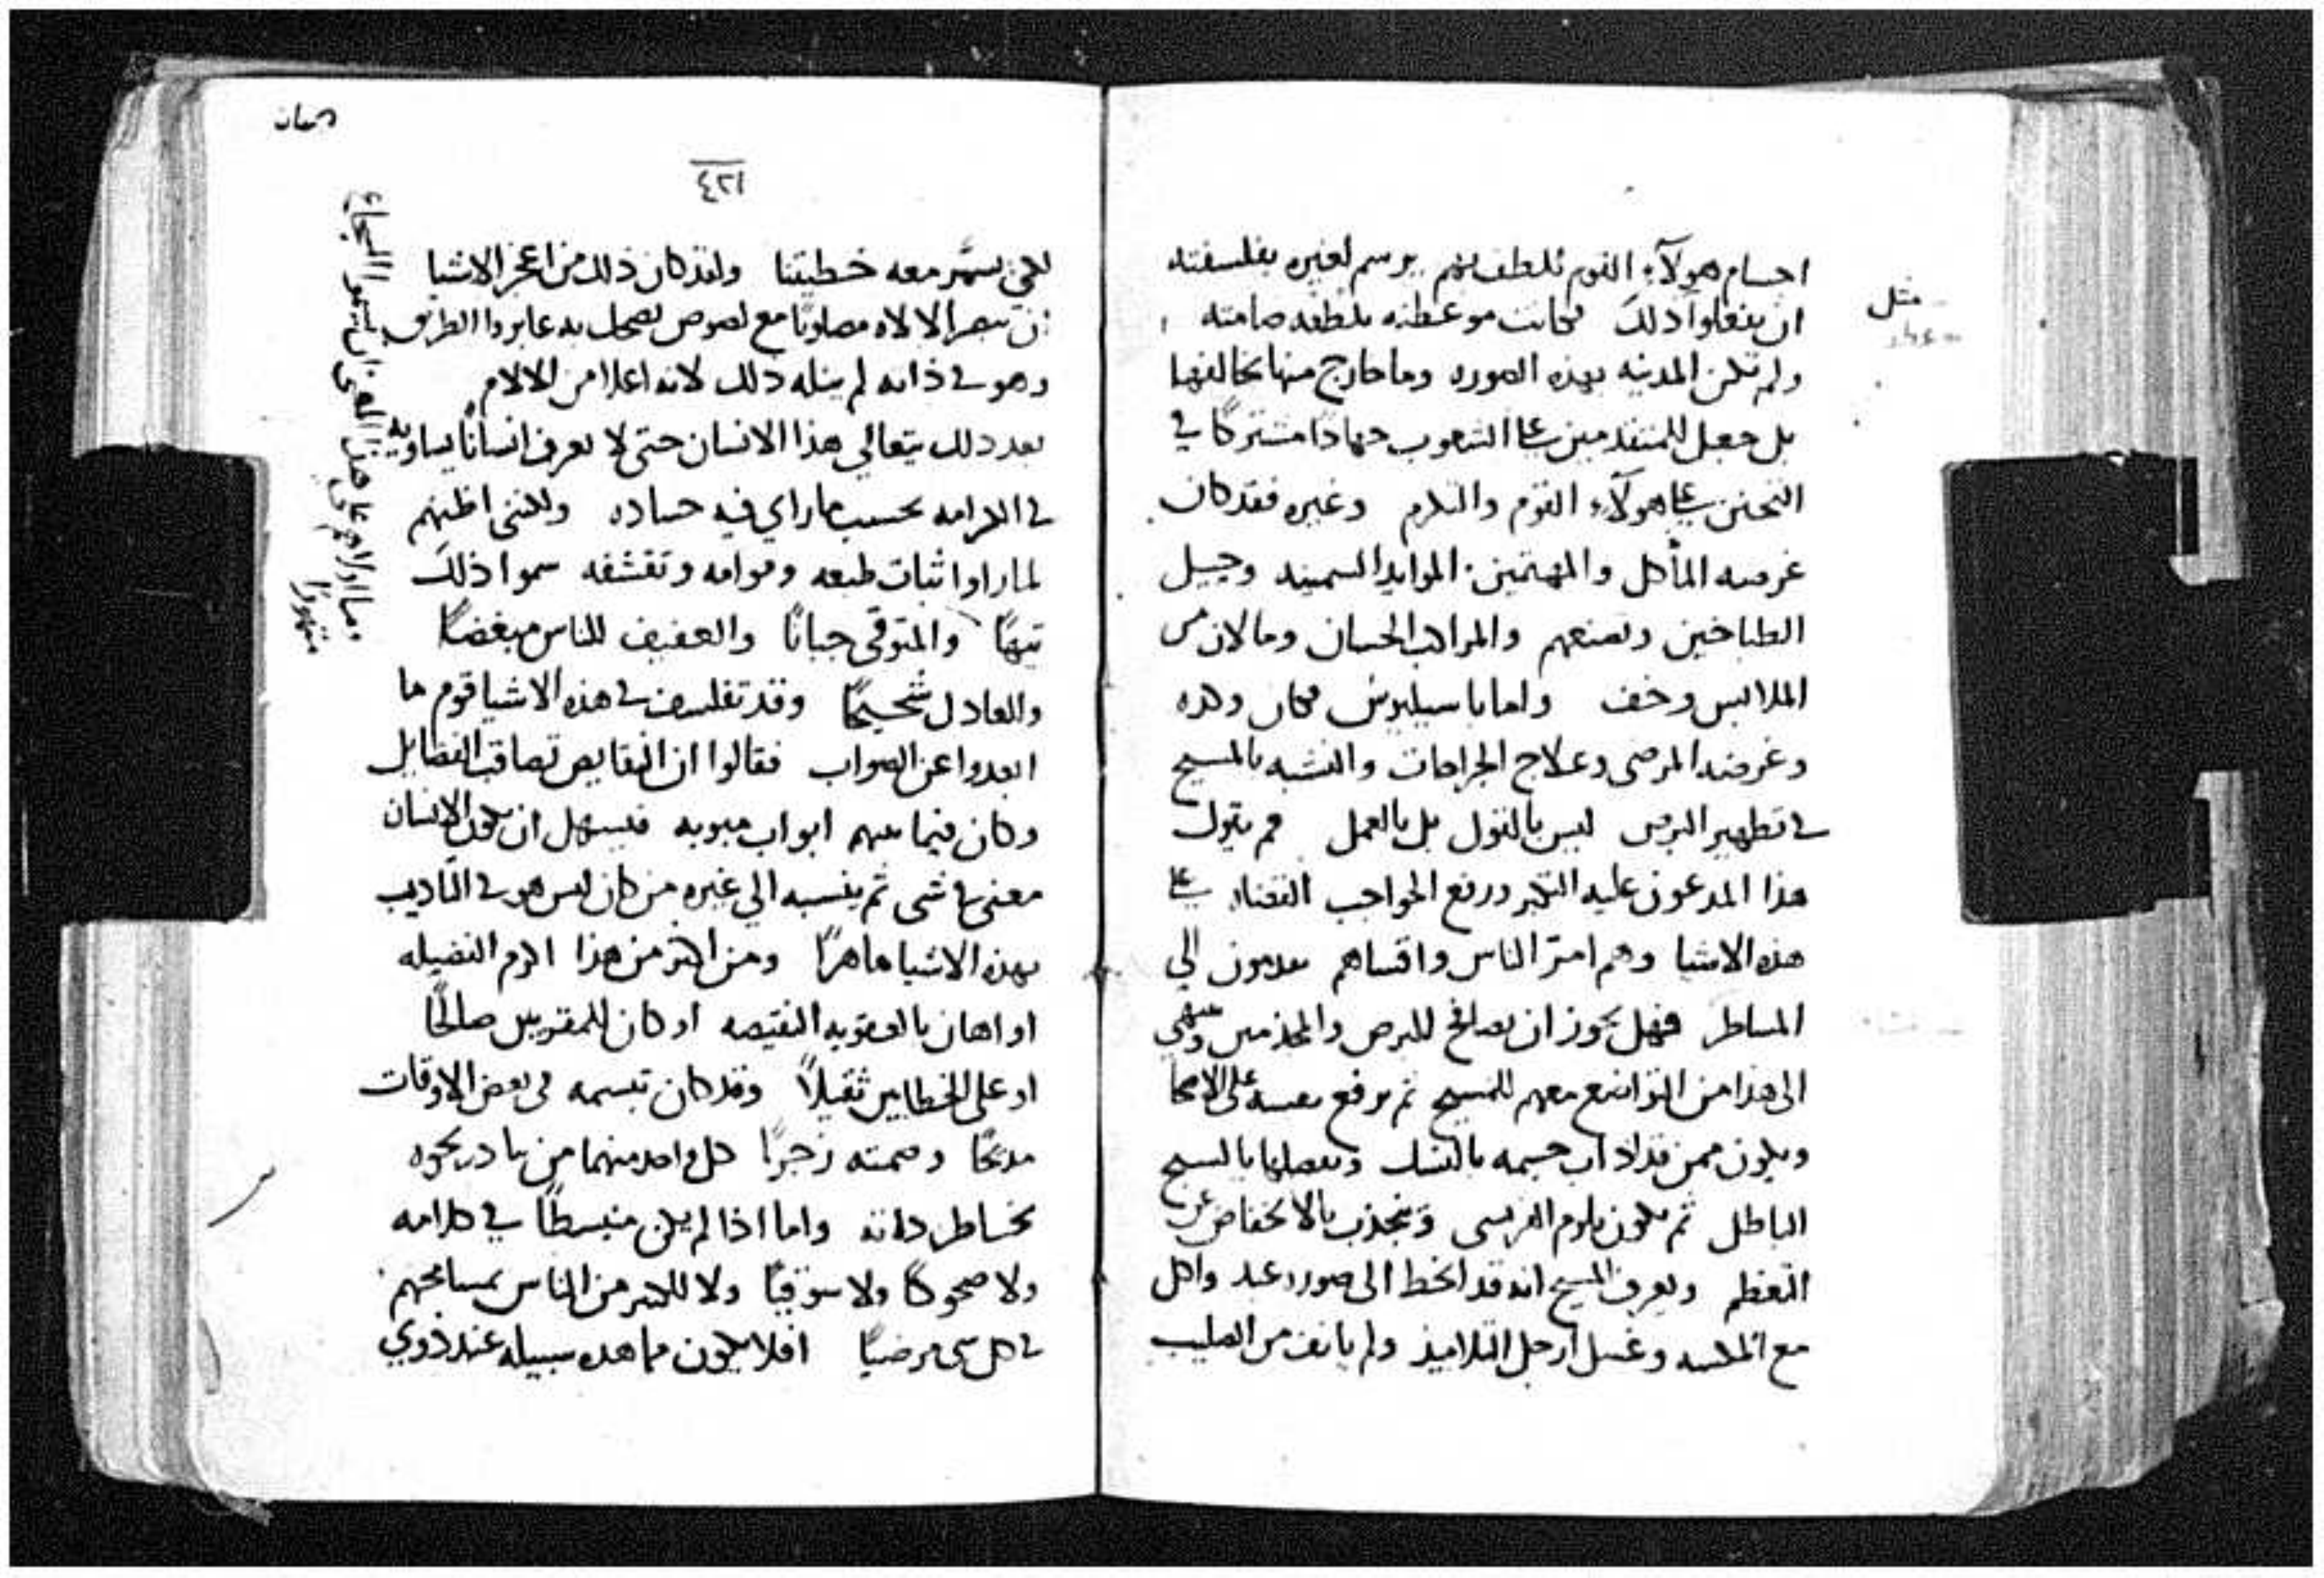 اجسام هولآء القوم تلطف بهم برسم لغيره بفلسفته
ان يفعلوا ذلك فكانت موعظته بلطفه صامته
ولم تكن المدينه بهذه الصوره وما خارج منها يخالفها
بل جعل للمتقدمين على الشعوب جهادًا مشتركًا في
التحنن على هولآء القوم والتكرم وغيره فقد كان
غرضه المأكل والمهتمين الموايد السمينه وحيل
الطباخين وتصنعهم والمراكب الحسان وما لان من
الملابس وخف واما باسيليوس فكان وكده
وغرضه المرضى وعلاج الجراحات والتشبه بالمسيح
في تطهير البرص ليس بالقول بل بالعمل فم يقول
هذا المدعون عليه التكبر ورفع الحواجب القضاه على
هذه الاشيا وهم امر الناس واقساهم الي
المساطر فهل يجوز ان يصافح للبرص والمجذمين وينتهي
الى هذا من التواضع معهم للمسيح ثم يرفع نفسه على الاصحا
ويكون ممن قد اذاب جسمه بالنسك بالسبح
الباطل ثم يكون يلوم الفريسى وينجذب بالانخفاض عن
التعظم ويعرف المسيح انه قد انحط الى صورة عبد واكل
مع المكسه وغسل ارجل التلاميذ ولم يانف من الصليب
مثل
٤٢١
لكى يسمَّر معه خطيتنا ولقد كان ذلك من اعجز الاشيا
ان يبصر الالاه مصلوبًا مع لصوص يضحك به عابروا الطريق
وهو في ذاته لم ينله ذلك لانه اعلا من الالام
بعد ذلك يتعالي هذا الانسان حتى لا يعرف انسانًا يساويه
في الكرامه بحسب ما راي فيه حساده ولكننى اظنهم
لما راوا ثبات طبعه وقوامه وتقشفه سموا ذلك
تيهًا والمتوقي جبانًا والعفيف للناس مبغضًا
والعادل شحيحًا وقد تفلسف في هذه الاشيا قوم ما
ابعدوا عن الصواب فقالوا ان النقايص تصاقب الفضايل
وكان فيما بينهم ابواب مبوبه فيسهل ان يكون الانسان
معنى في شى ثم ينسبه الي غيره من كان ليس هو في التاديب
بهذه الاشيا ماهرًا ومن اكثر من هذا اكرم الفضيله
او اهان بالعقوبه النقيصه او كان للمقوبين صالحًا
او على الخطايين ثقيلاً وقد كان تبسمه في بعض الاوقات
مدحًا وصمته زجرًا كل واحد منهما من بادر نحوه
بخساطر ذاته واما اذا لم يكن منبسطًا في كلامه
ولا ضحوكًا ولا سوقيًا ولا للكثير من الناس بمسامحتهم
في كل شى مرضيًا افلا يكون مما هده سبيله عند ذوي
وما اولاهم على هذا المعنى ان يسموا الشجاع
متهورًا